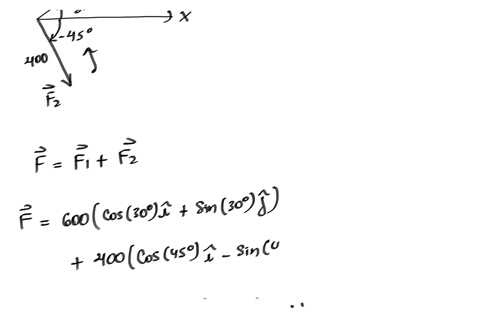 x
-45°
400
F⃗₂
F⃗ = F⃗₁ + F⃗₂
F⃗ = 600(Cos(30°)î + Sin(30°)ĵ)
+ 400(Cos(45°)î - Sin(